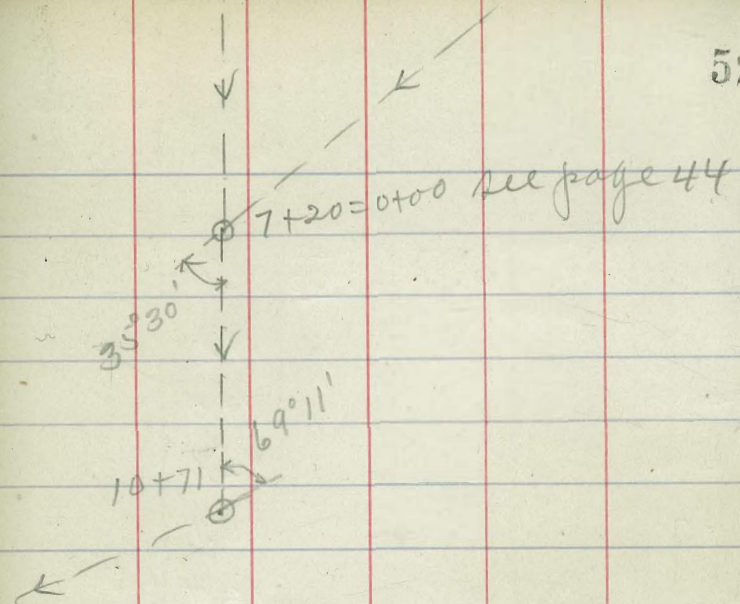 7+20=0+00 see page 44
35°30'
69°11'
10+71